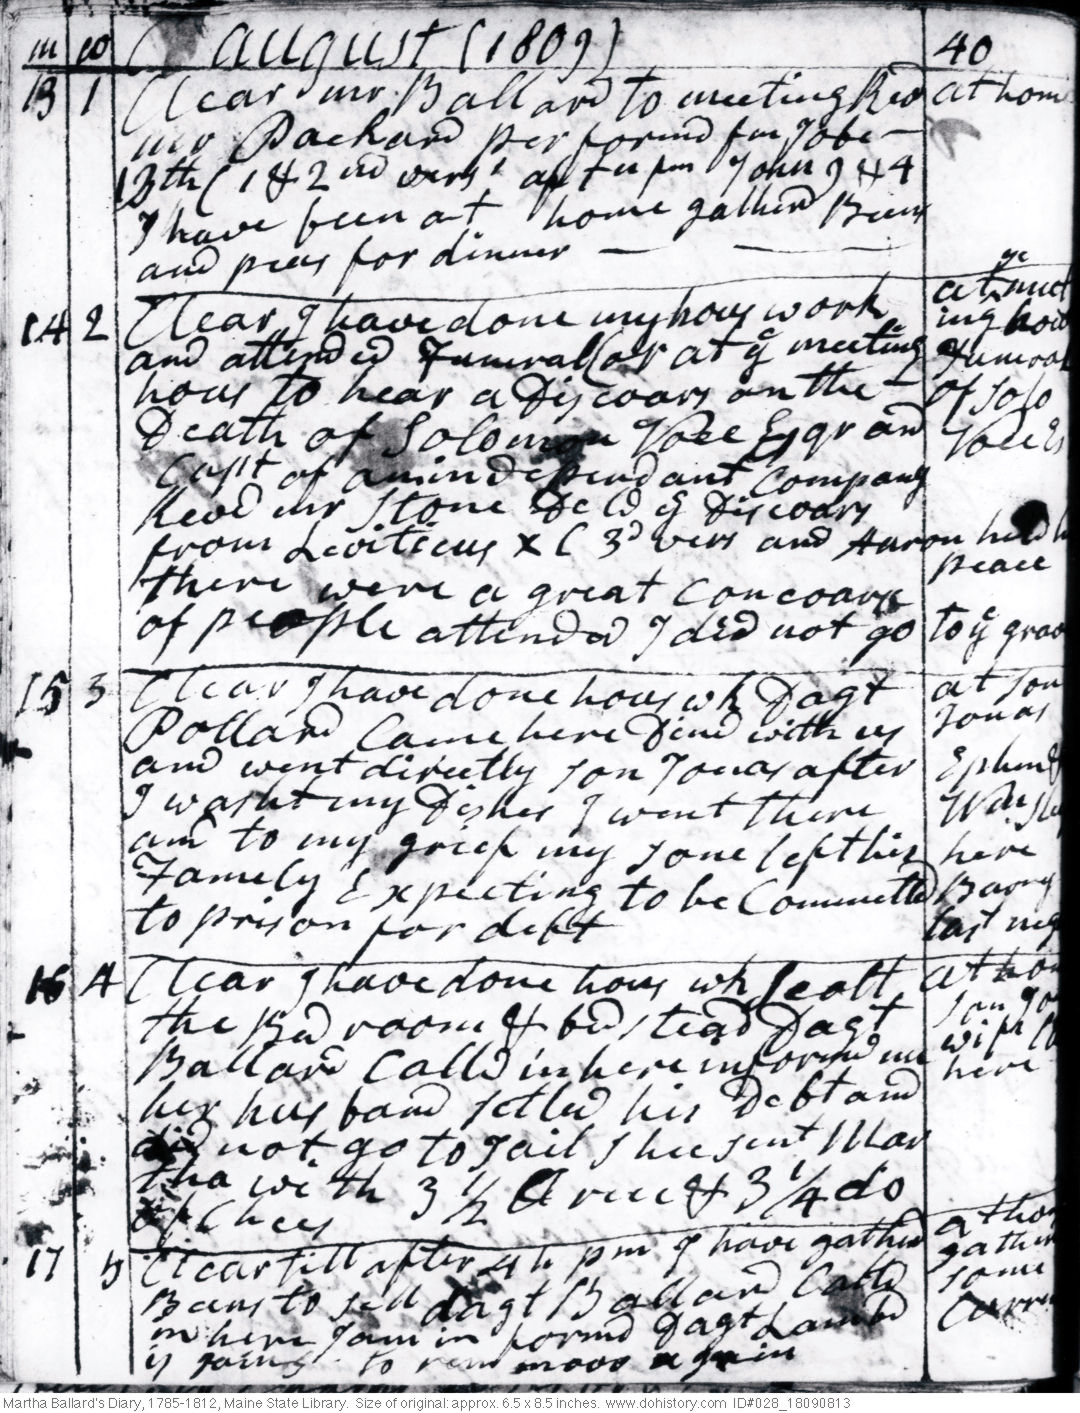 m D august (1809) 40
13 1 Clear mr Ballard to meeting Revd at home
mr Packard performd from Jobe
13th (1 & 2nd vers aftn pm John 9 & 4
I have been at home gatherd Beens
and peas for dinner
ye
14 2 Clear I have done my hous work at meet
and attended Funeral (or at ye meeting ing hous
hous to hear a Discoars on the Funeral
Death of Solomon Vose Esqr and of Solo
Capt of an independant Company Vose Es
Revd mr Stone Deld ye Discoars
from Leviticus X C 3d vers and Aaron held h
peace
there were a great Concoars
of people attended I did not go to ye grav
15 3 Clear I have done hous wk Dagt at son
Pollard Came here Dind with us Jonas
and went directly son Jonas after Ephm
I washt my Dishes I went there
and to my grief my sone left his here
Family Expecting to be Committd Barny
to prison for debt last nig
16 4 Clear I have done hous wk scalt at hom
the Bed room & bedstead Dagt son
Ballard Calld in here informd me wife
her husband setled his Debt and here
did not go to Jail shee sent Mar
tha with 3 1/2 rice & 3 1/4 do
of Chees
17 5 Clear till after 4 h pm I have gatherd at hom
Beens to sell dagt Ballard Calld gather
in here I am informd Dagt Lambd some
is going to remmoov again Curr
Martha Ballard's Diary, 1785-1812, Maine State Library. Size of original: approx. 6.5 x 8.5 inches. www.dohistory.com ID#028_18090813